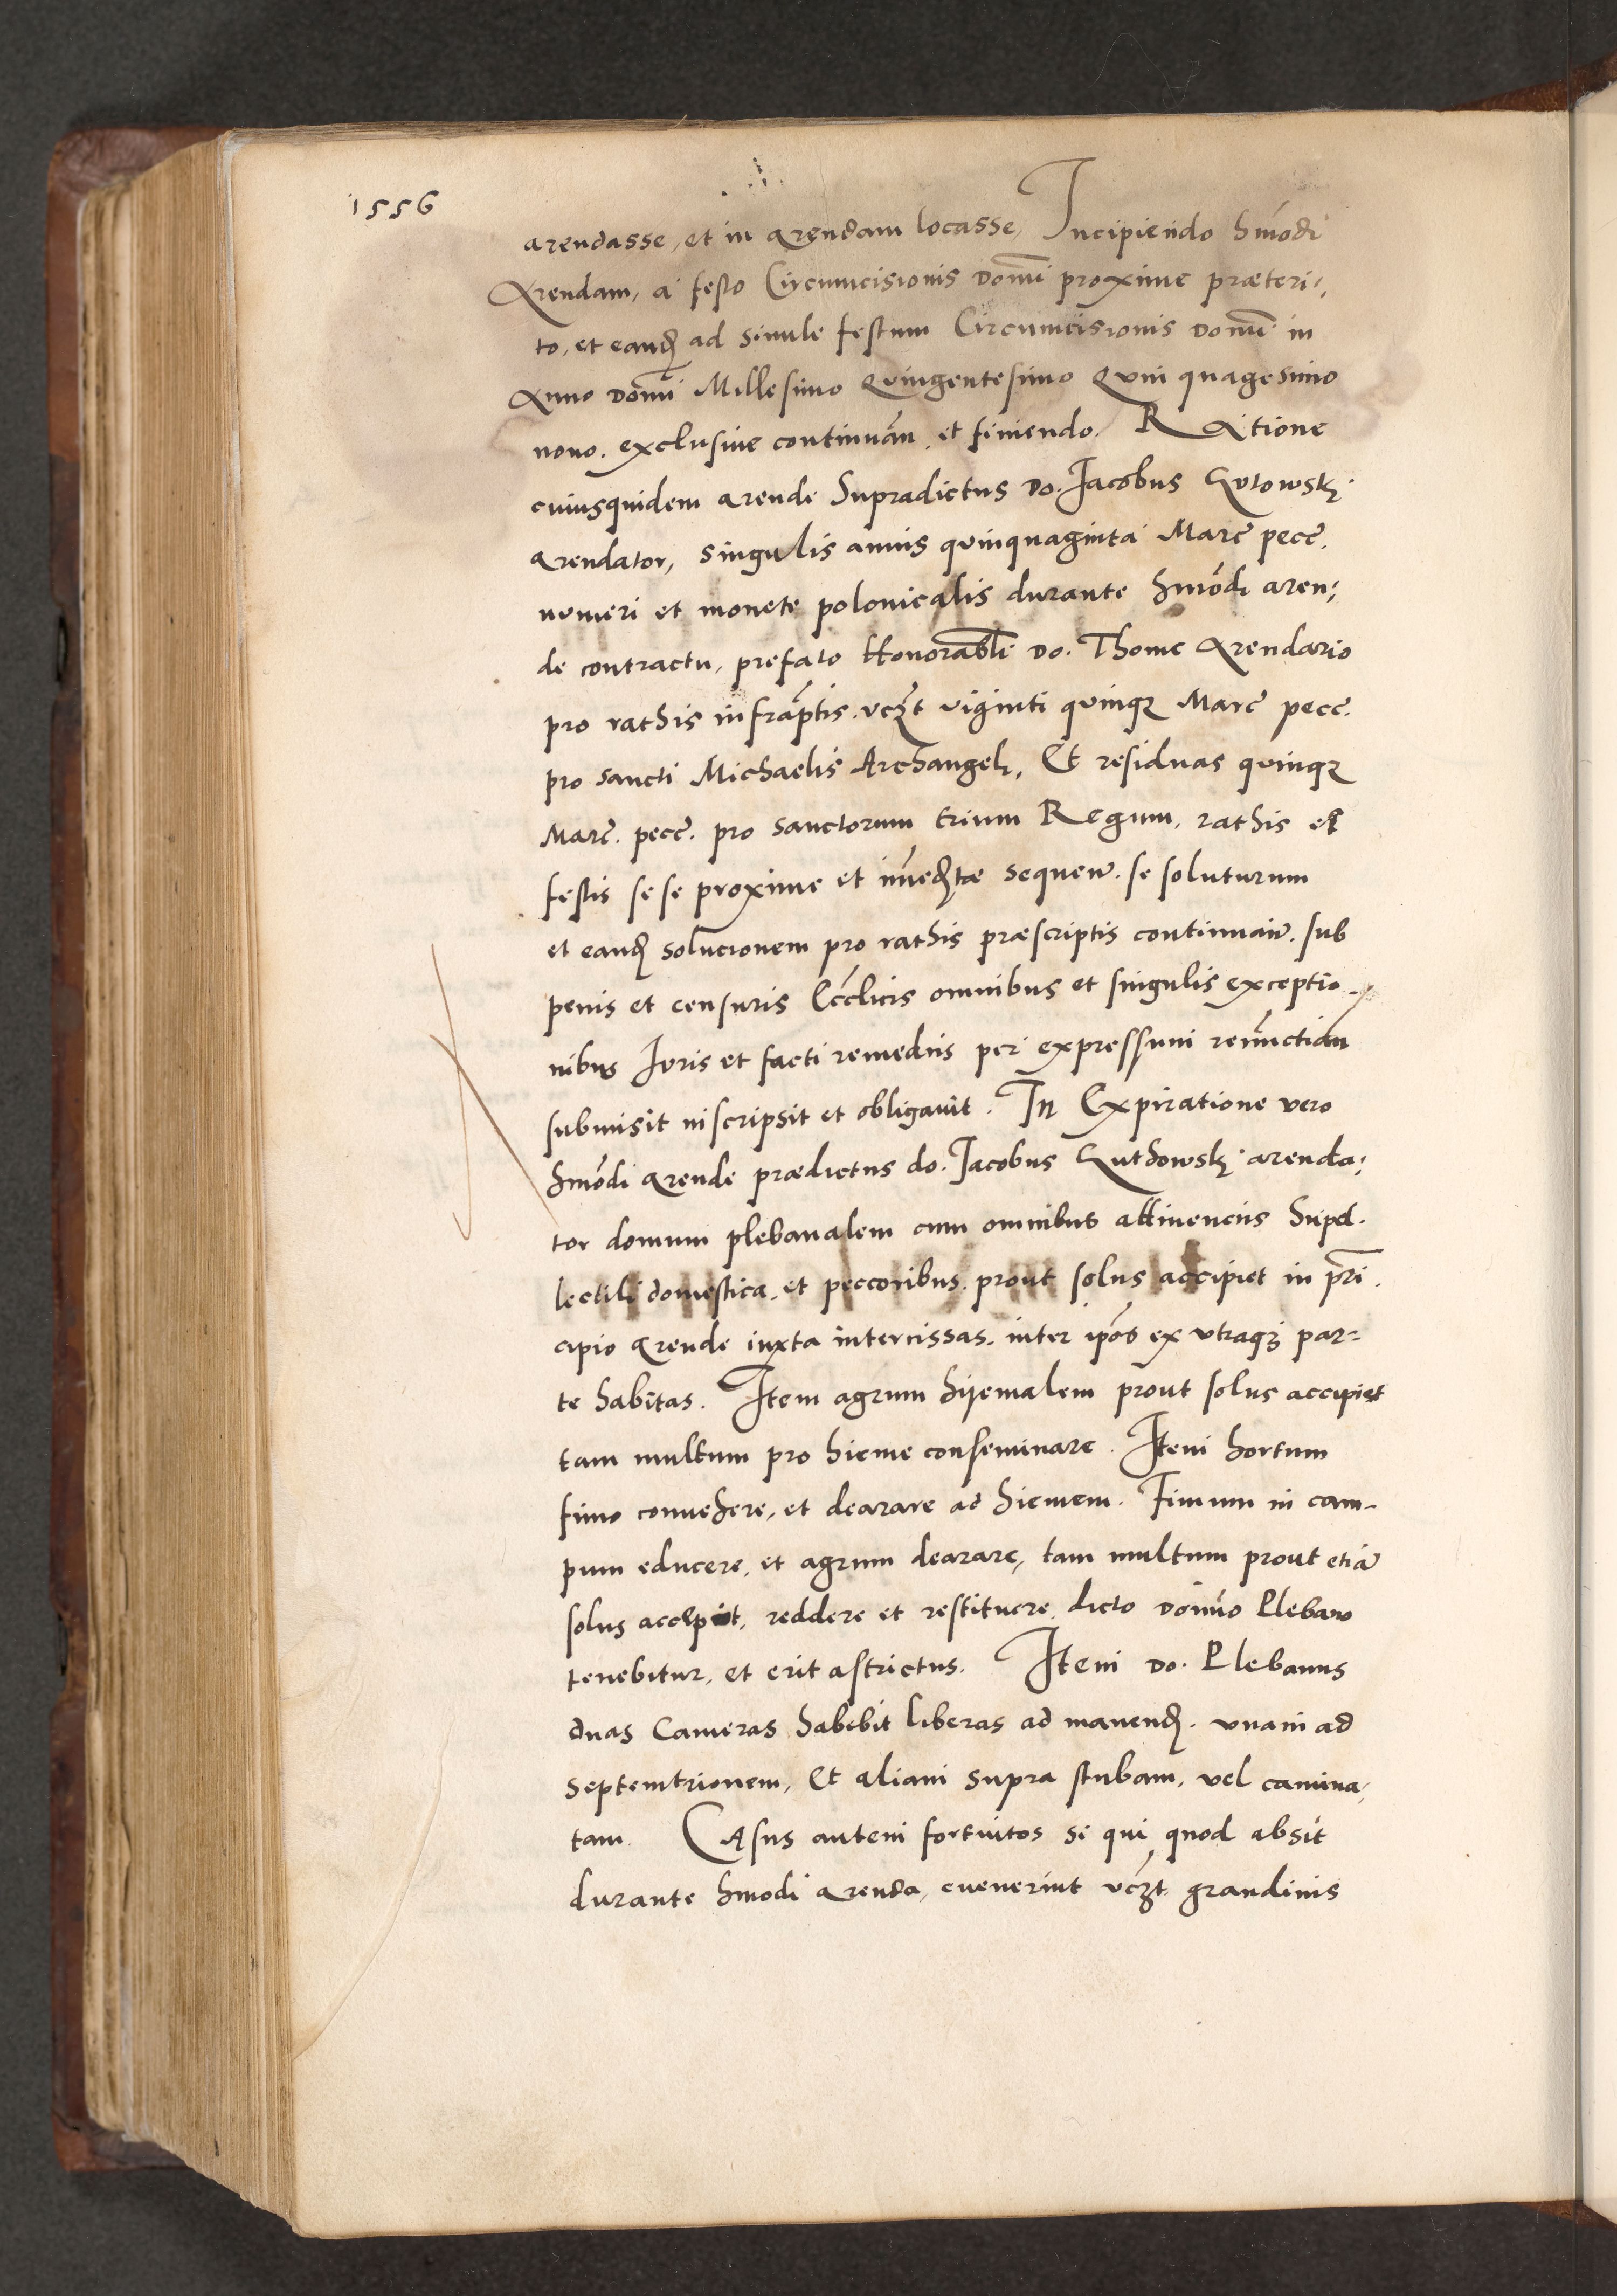 1556
arendasse, et in arendam locasse, Incipiendo hmōdi
Arendam, a festo Circumcisionis Domī proxime præteri,
to, et eand ad simile festum Circumcisionis Domī in
Anno Domī Millesimo Quingentesimo Quinquagesimo
nono. exclusive continuān. et finiendo. RAtione
cuiusquidem arende Supradictus Do. Jacobus Gutowsky
Arendator, singulis annis quinquaginta Marc̄ pecc̄.
numeri et monete polonicalis durante hmōdi aren,
de contractu, prefato Honorabli Do. Thome Arendario
pro rathis infrap̄tis. vczt viginti quinqz Marc̄ pecc.
pro sancti Michaelis Archangeli, Et residuas quinqz
Marc̄. pecc̄. pro sanctorum trium Regum, rathis et
festis se se proxime et imediate sequen. se soluturum
et eand solucionem pro rathis præscriptis continuan. sub
penis et censuris Eccl̄icis omnibus et singulis exceptio-
nibus Iuris et facti remediis per expressum renūctiān
submisit inscripsit et obligavit. In Expiratione vero
hmōdi arende prædictus do. Jacobus Guthowsky arenda,
tor domum plebanalem cum omnibus attinenciis Supel.
lectili domestica. et peccoribus. prout solus accipiet in prī.
cipio arende iuxta intercissas. inter ipōs ex vtraqz par=
te habitas. Item agrum hijemalem prout solus accipiet
tam multum pro hieme conseminare. Item hortum
fimo convehere, et dearare ad hiemem. Fimum in cam-
pum educere, et agrum dearare, tam multum prout etiā
solus accepit, reddere et restituere dicto Domīo Plebano
tenebitur, et erit astrictus. Item Do. Plebanus
duas Cameras habebit liberas ad manend. vnam ad
septemtrionem, Et aliam supra stubam, vel camina,
tam. CAsus autem fortuitos si qui quod absit
durante hmodi arenda, evenerint vczt grandinis